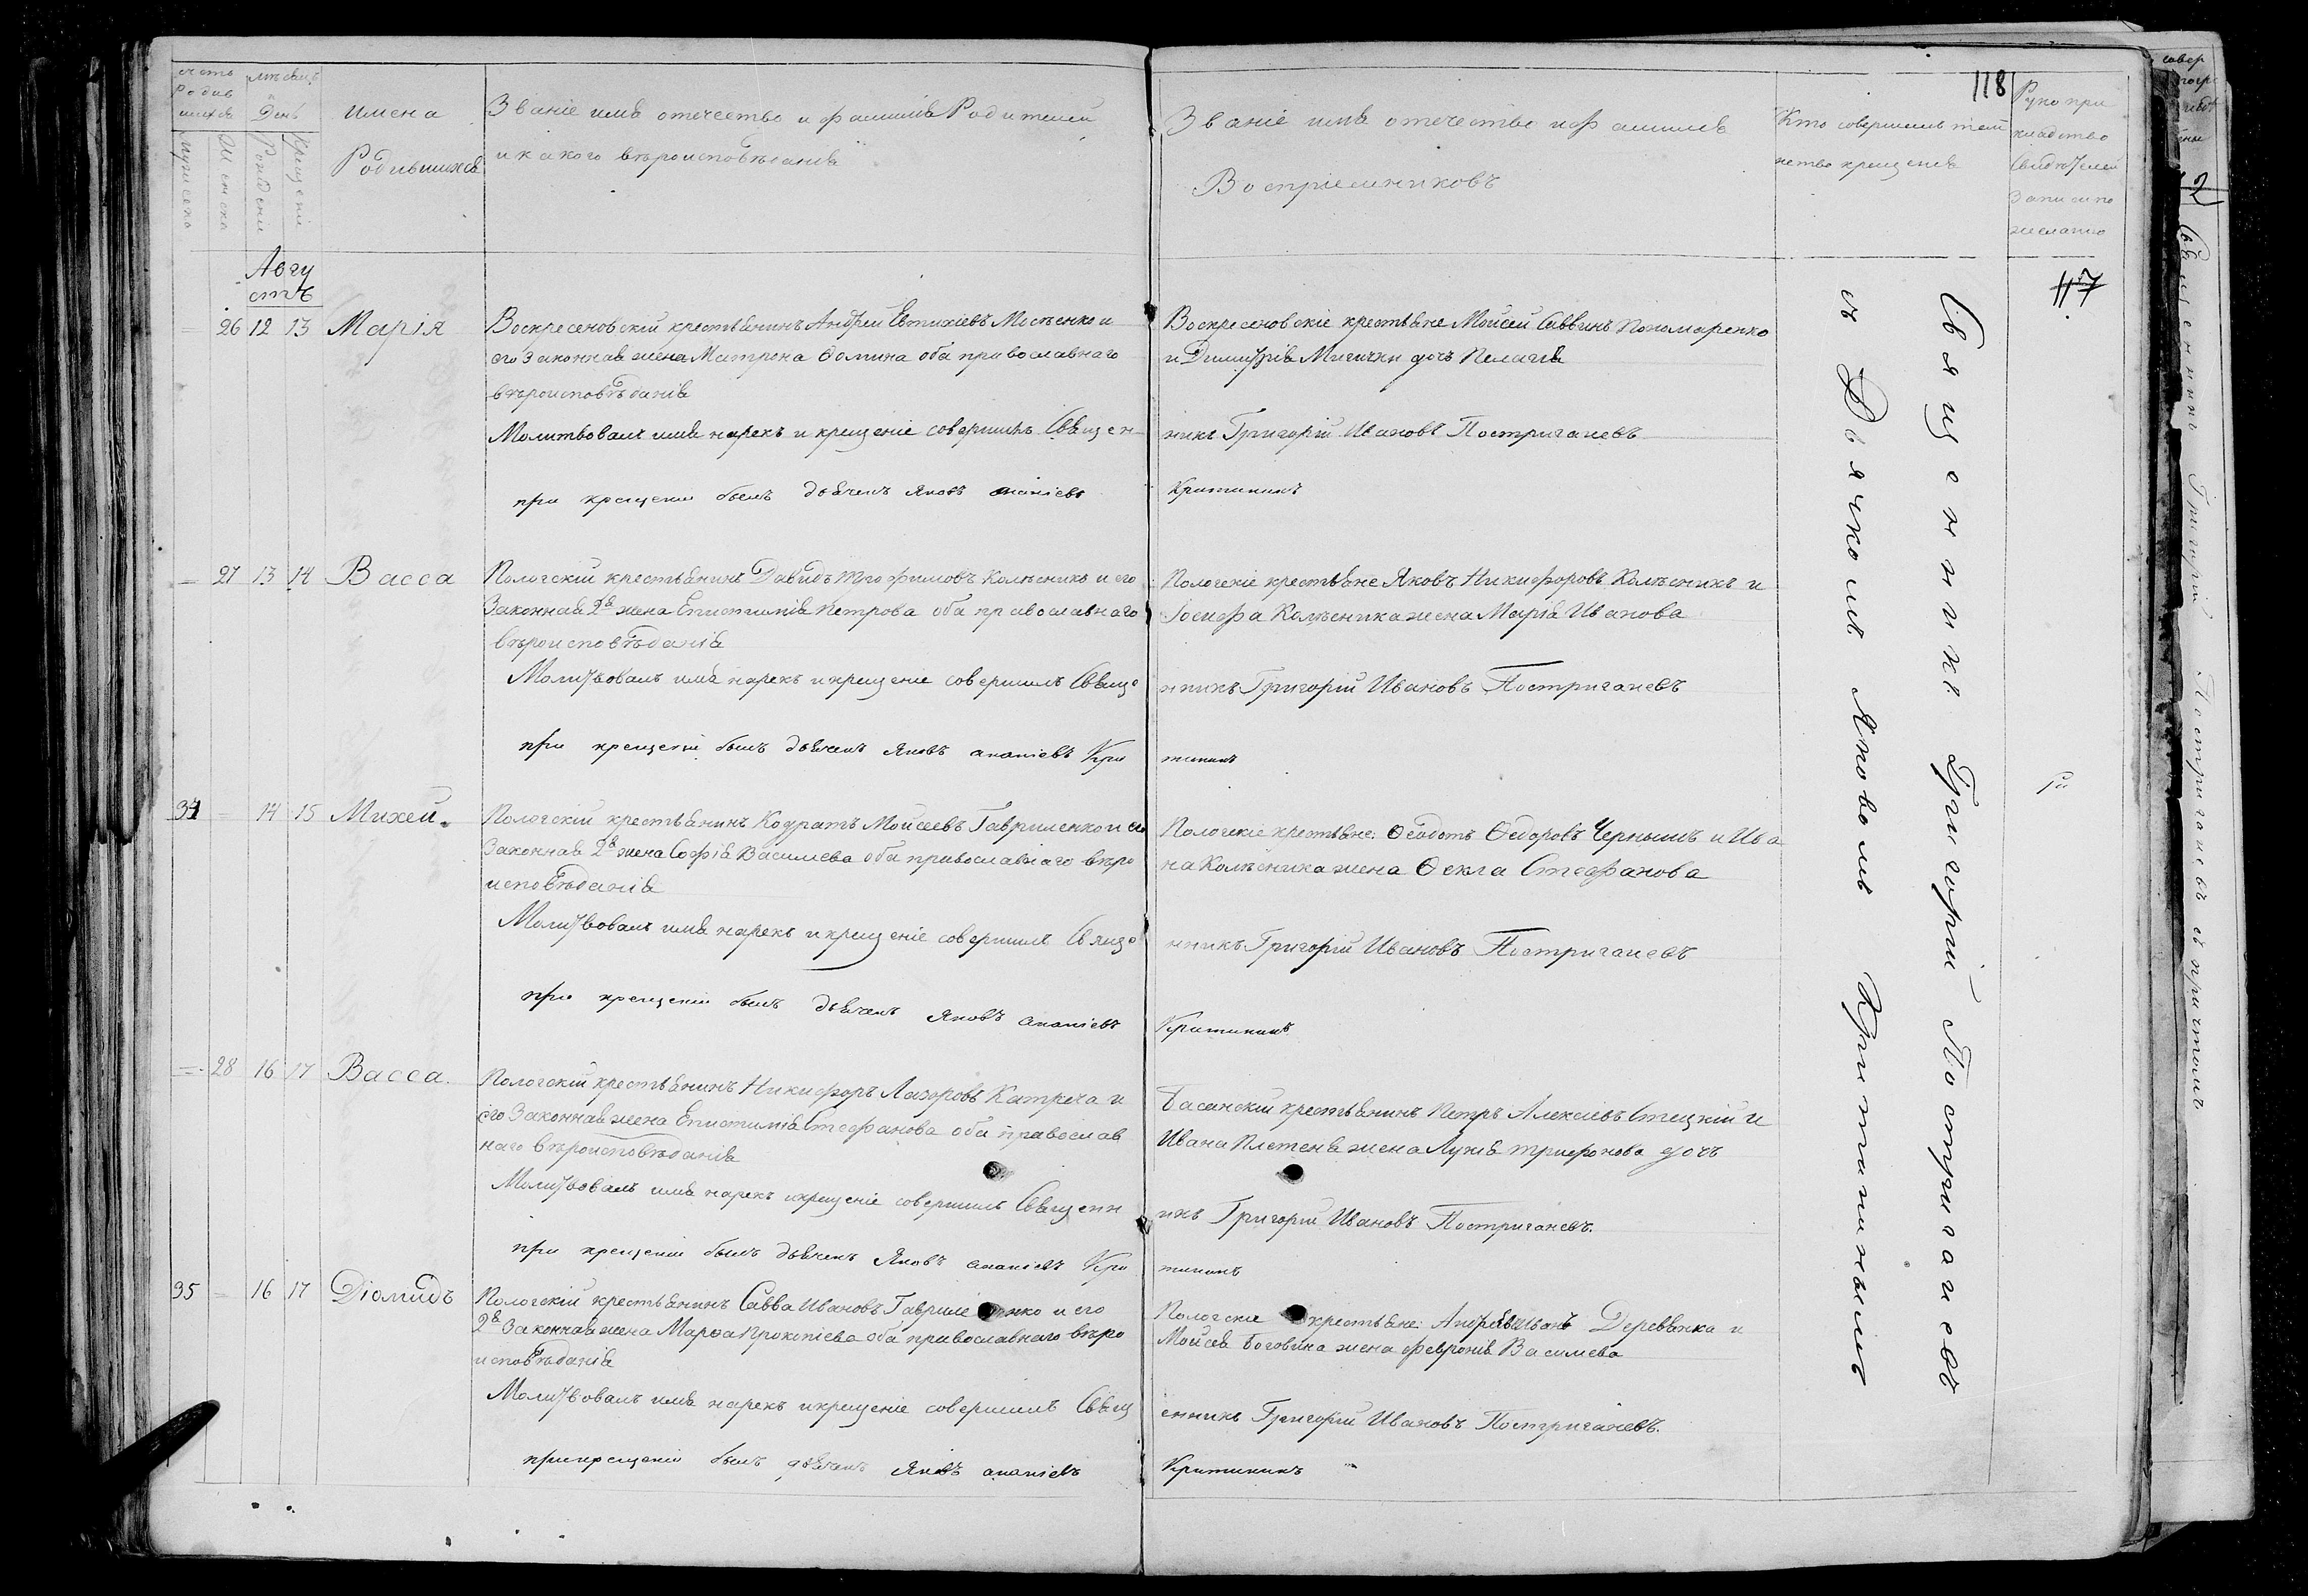 счетъ родив шихся
мѣсяцъ и день
мужеска
женска
рожденіе
крещеніе
имена
Родившихся
Званіе имя отечество и фамилія Родителей
и какого вѣроисповѣданія
Званіе имя отечество и фамилія
Воспріемниковъ
Кто совершилъ таин
ство крещенія
118
Рукопри
кладство
свидѣтелей
записи по
желанію
117
Авгу
стъ
26 12 13 Марія
Воскресеновскій крестьянинъ Андрей Евтихіевъ Мосѣенко и
его законная жена Матрона Ѳомина оба православнаго
вѣроисповѣданія
Молитвовалъ имя нарекъ и крещеніе совершилъ Священ
при крещеніи былъ дьячекъ Яковъ Ананіевъ
Воскресеновскіе крестьяне Моисей Саввинъ Пономаренко
и Димитрія дочь Пелагія
никъ Григорій Ивановъ Постригачевъ
Критининъ
27 13 14 Васса
Пологскій крестьянинъ Давидъ Трофимовъ Колѣсникъ и его
Законная 2я жена Епистимія Петрова оба православнаго
вѣроисповѣданія
Молитвовалъ имя нарекъ и крещеніе совершилъ Свяще
при крещеніи былъ дьячекъ Яковъ Ананіевъ Кри
Пологскіе крестьяне Яковъ Никифоровъ Колѣсникъ и
Іосифа Колѣсника жена Марія Иванова
нникъ Григорій Ивановъ Постригачевъ
тининъ
34 14 15 Михей
Пологскій крестьянинъ Кодратъ Мойсеевъ Гавриленко и его
Законная 2я жена Софія Василева оба православнаго вѣро
исповѣданія
Молитвовалъ имя нарекъ и крещеніе совершилъ Свяще
при крещеніи былъ дьячекъ Яковъ Ананіевъ
Пологскіе крестьяне: Ѳеодотъ Ѳедоровъ Чернышъ и Ива
на Колѣсника жена Ѳекла Стефанова
нникъ Григорій Ивановъ Постригачевъ
Критининъ
28 16 17 Васса.
Пологскій крестьянинъ Никифоръ Лазоровъ Катреча и
его Законная жена Епистимія Стефанова оба православ
наго вѣроисповѣданія
Молитвовалъ имя нарекъ и крещеніе совершилъ Священн
при крещеніи былъ дьячекъ Яковъ Ананіевъ Кри
Басанскій крестьянинъ Петръ Алексіевъ Стецкій и
Ивана Плетеня жена Лукія Трифонова дочь
икъ Григорій Ивановъ Постригачевъ.
тининъ
35 16 17 Діомидъ
Пологскій крестьянинъ Савва Ивановъ Гавриленко и его
2я Законная жена Марѳа Прокопіева оба православнаго вѣро
исповѣданія
Молитвовалъ имя нарекъ и крещеніе совершилъ Свящ
при крещеніи былъ дьячекъ Яковъ Ананіевъ
Пологскіе крестьяне: Деревянка и
Мойсея Боговина жена Февронія Василева
енникъ Григорій Ивановъ Постригачевъ.
Критининъ
Священникъ Григорій Постригачевъ
съ Дьячкомъ Яковомъ Критининымъ
2
Священникъ Григорій Постригачевъ съ причтомъ